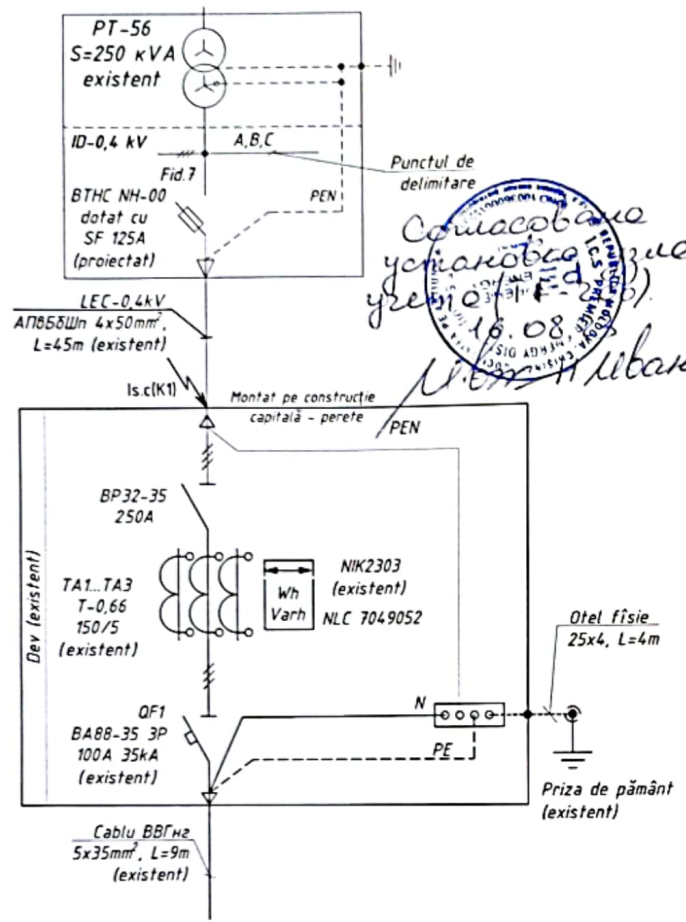 PT-56
S=250 кVA
existent
ID-0,4 kV
A,B,C
Punctul de
delimitare
Fid.7
ВТНС NH-00
dotat cu
SF 125A
(proiectat)
PEN
Согласована
установка
учета
16.08
I.C.S PREMIER ENERGY
LEC-0,4kV
АПВБбШп 4x50mm²,
L=45m (existent)
Is.c(K1)
Montat pe construcție
capitală - perete
PEN
BP32-35
250A
Dev (existent)
TA1...TA3
T-0,66
150/5
(existent)
Wh
Varh
NIK2303
(existent)
NLC 7049052
Otel fîsie
25x4, L=4m
QF1
BA88-35 3P
100A 35kA
(existent)
N
PE
Priza de pământ
(existent)
Cablu ВВГнг
5x35mm², L=9m
(existent)